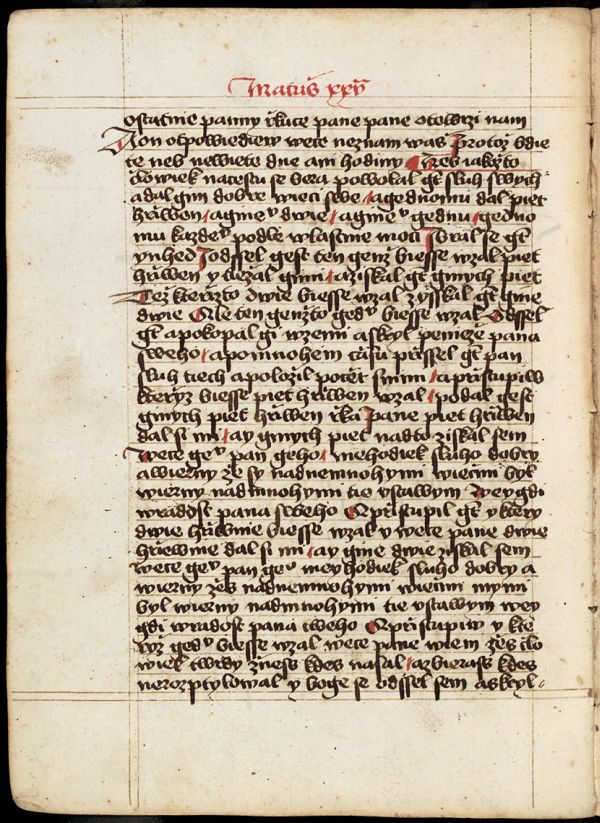 Matus xxv
ostatnie panny řkuce pane pane otewrzi nam
A on otpowiediew wece neznam was Protož bdie
te neb newiete dne ani hodiny Neb iakžto
človiek nacestu se bera powolal gt sluh swych
adal gim dobre wieci swe a gednomu dal piet
hřiwen a gme͛ dwie a gine͛ gednu gedno
mu kazde͛ podle wlastnie moci I bral se gt
ynhed I odssel gest ten genž biesse wzal piet
hřiwen y tiežal gimi a ziskal gt ginych piet
Též kterížto dwie biesse wzal zyskal gt gine
dwie Ale ten genžto ged͛ biesse wzal Odssel
gt apokopal gi wzemi askryl penieze pana
sweho a pomnohem času přissel gt pan
sluh tiech apoložil počet snimi a pristupiw
kteryz biesse piet hřiwen wzal podal gest
ginych piet hřiwen řka Pane piet hřiwen
dal si mi ay ginych piet nadto ziskal sem
Wece ge͛ pan geho nehodiek sluho dobry
awierny že sy nadnemnohymi wiecmi byl
wierny nadmnohymi tie vstawym Weygdi
wradost pana sweho Přistupil gt y ktery
dwie hřiwnie biesse wzal y wece pane dwie
hřiewnie dal si mi ay gine dwie ziskal sem
Wece ge͛ pan ge͛ neyhodiek sluho dobry a
wierny žes nadnemnohymi wiecmi mymi
byl wierny nadmnohymi tie vstawym wey
gdi wradost pana tweho Přistupiw y kte
ryž ged͛ biesse wzal wece pane wiem žes člo
wiek twrdy žness kdes nasal a zbierass kdes
nerozptylowal y boge se odssel sem askryl